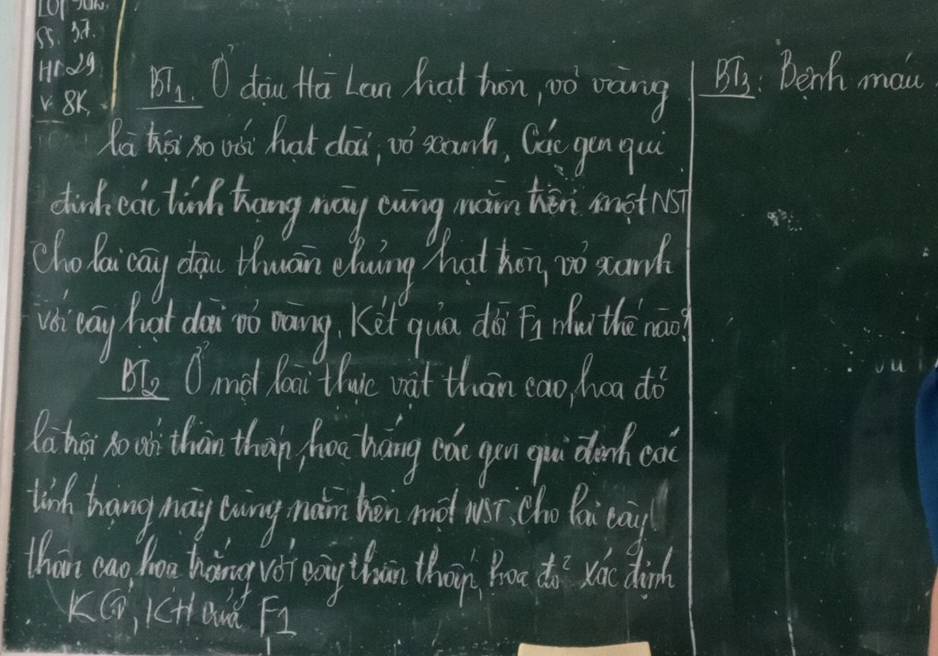 SS. 37.
HD 29
V. 8K
BT1. Ở đậu Hà Lan hạt tròn, vỏ vàng
là trội so với hạt dài, vỏ xanh. Các gen qui
định các tính trạng này cùng nằm trên một NST
Cho lai cây đậu thuần chủng hạt tròn, vỏ xanh
với cây hạt dài vỏ vàng. Kết qủa đời F1 như thế nào?
BT2 Ở một loài thực vật thân cao, hoa đỏ
là trội so với thân thấp, hoa trắng các gen qui định các
tính trạng này cùng nằm trên một NST. Cho lai cây
thân cao, hoa trắng với cây thân thấp, hoa đỏ xác định
KG, KH của F1
BT3: Bệnh máu